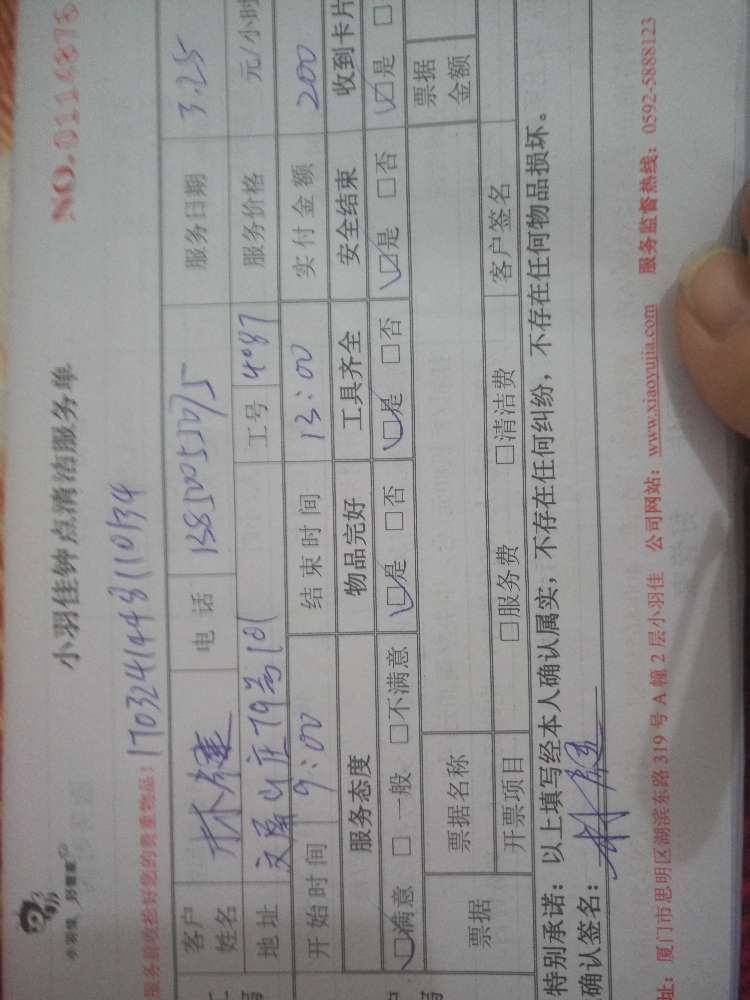 小羽佳 好管家
小羽佳钟点清洁服务单
NO.0114876
服务前收拾好您的贵重物品！
17032414481 10134
客户姓名 电话 13850051075 服务日期 3.25
地址 文屏山庄79号101 工号 4087 服务价格 元/小时
开始时间 9:00 结束时间 13:00 实付金额 200
服务态度 物品完好 工具齐全 安全结束 收到卡片
☑满意 □一般 □不满意 ☑是 □否 ☑是 □否 ☑是 □否 ☑是 □
票据 票据名称 票据金额
开票项目 □服务费 □清洁费 客户签名
特别承诺：以上填写经本人确认属实，不存在任何纠纷，不存在任何物品损坏。
确认签名：
址：厦门市思明区湖滨东路319号A幢2层小羽佳 公司网站：www.xiaoyujia.com 服务监督热线：0592-5888123